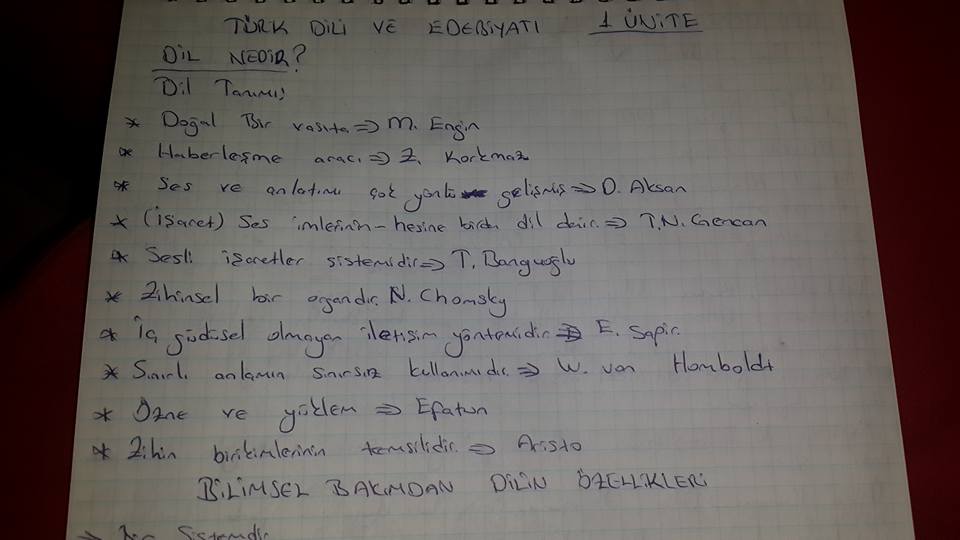 TÜRK DİLİ VE EDEBİYATI 1 ÜNİTE
DİL NEDİR?
Dil Tanımı;
* Doğal Bir vasıta => M. Engin
* Haberleşme aracı => Z. Korkmaz
* Ses ve anlatımı çok yönlü gelişmiş => D. Aksan
* (İşaret) Ses imlerinin - hesine birden dil denir. => T.N. Gencan
* Sesli işaretler sistemidir => T. Banguoğlu
* Zihinsel bir organdır. N. Chomsky
* İç güdüsel olmayan iletişim yöntemidir => E. Sapir.
* Sınırlı anlamın sınırsız kullanımıdır. => W. von Homboldt
* Özne ve yüklem => Efatun
* Zihin birikimlerinin temsilidir. => Aristo
BİLİMSEL BAKIMDAN DİLİN ÖZELLİKLERİ
Sistemdir